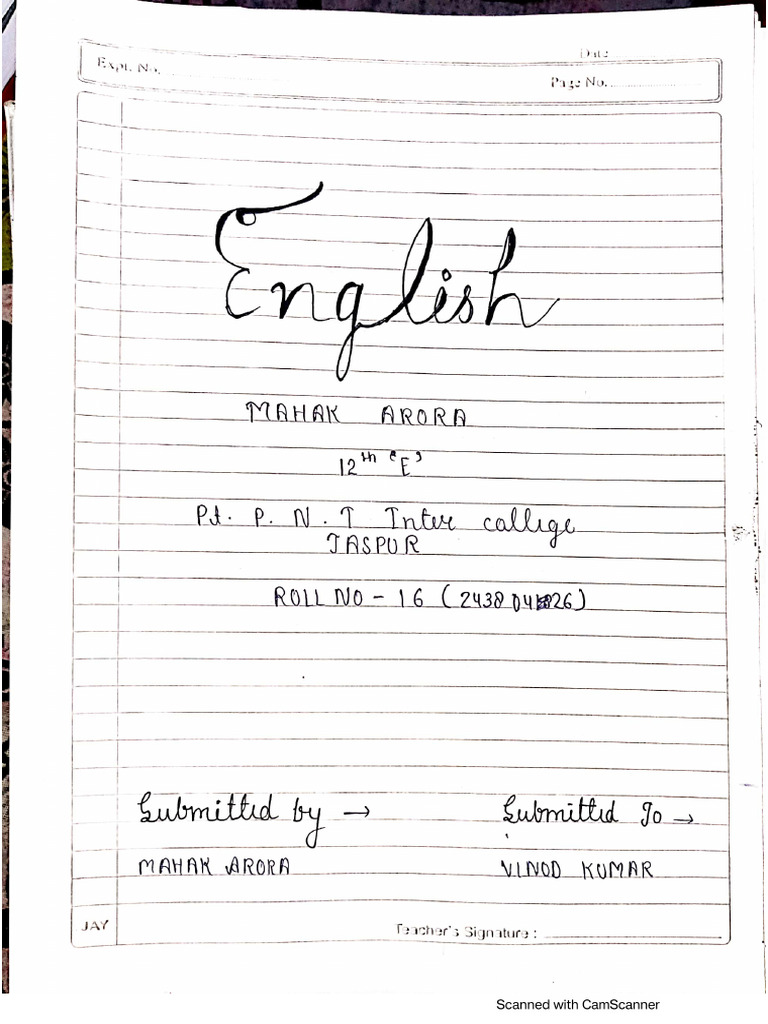 Date
Expt. No.
Page No.
English
MAHAK ARORA
12th 'E'
Pt. P. N. T Inter college
JASPUR
ROLL NO - 16 (
Submitted by → Submitted To →
MAHAK ARORA VINOD KUMAR
JAY Teacher's Signature :
Scanned with CamScanner